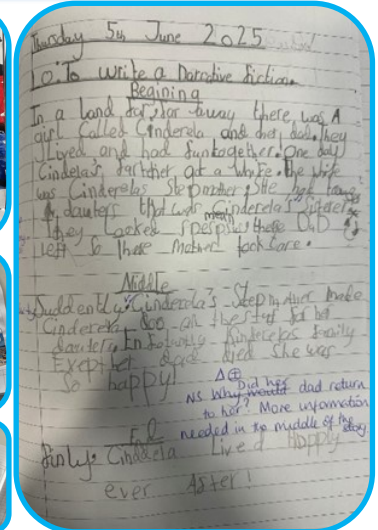 Thursday 5th June 2025
L.O: To write a Narrative fiction.
Begining
In a land far, far away there, was A
girl called Cinderela and her dad. They
Lived and had fun together. One day
got a waife. the wife
was Cinderelas Stepmother, She had
dauters that was Cinderela's
They Looked mean there DaD
Left So there Mother took care.
Middle
Suddently Cinderela's Stepmother make
Cinderela Doo all the stuf for her
dauters. In family
Exept her dad died She was
So happy!
NS Why would Did her dad return
to her? More information
needed in the middle of the story.
End
Cindrela Lived Happly
ever After!